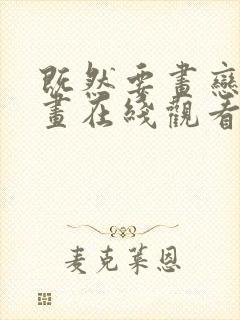 既然要畫戀
畫在綫觀看
麦克莱恩